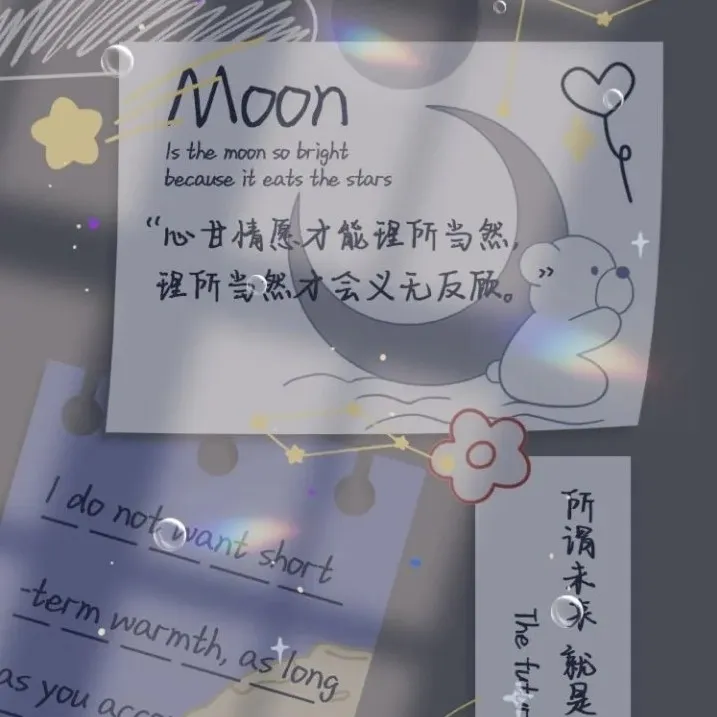 Moon
Is the moon so bright
because it eats the stars
“心甘情愿才能理所当然,
理所当然才会义无反顾。”
I do not want short
-term warmth, as long
as you
所谓未来 就是
The